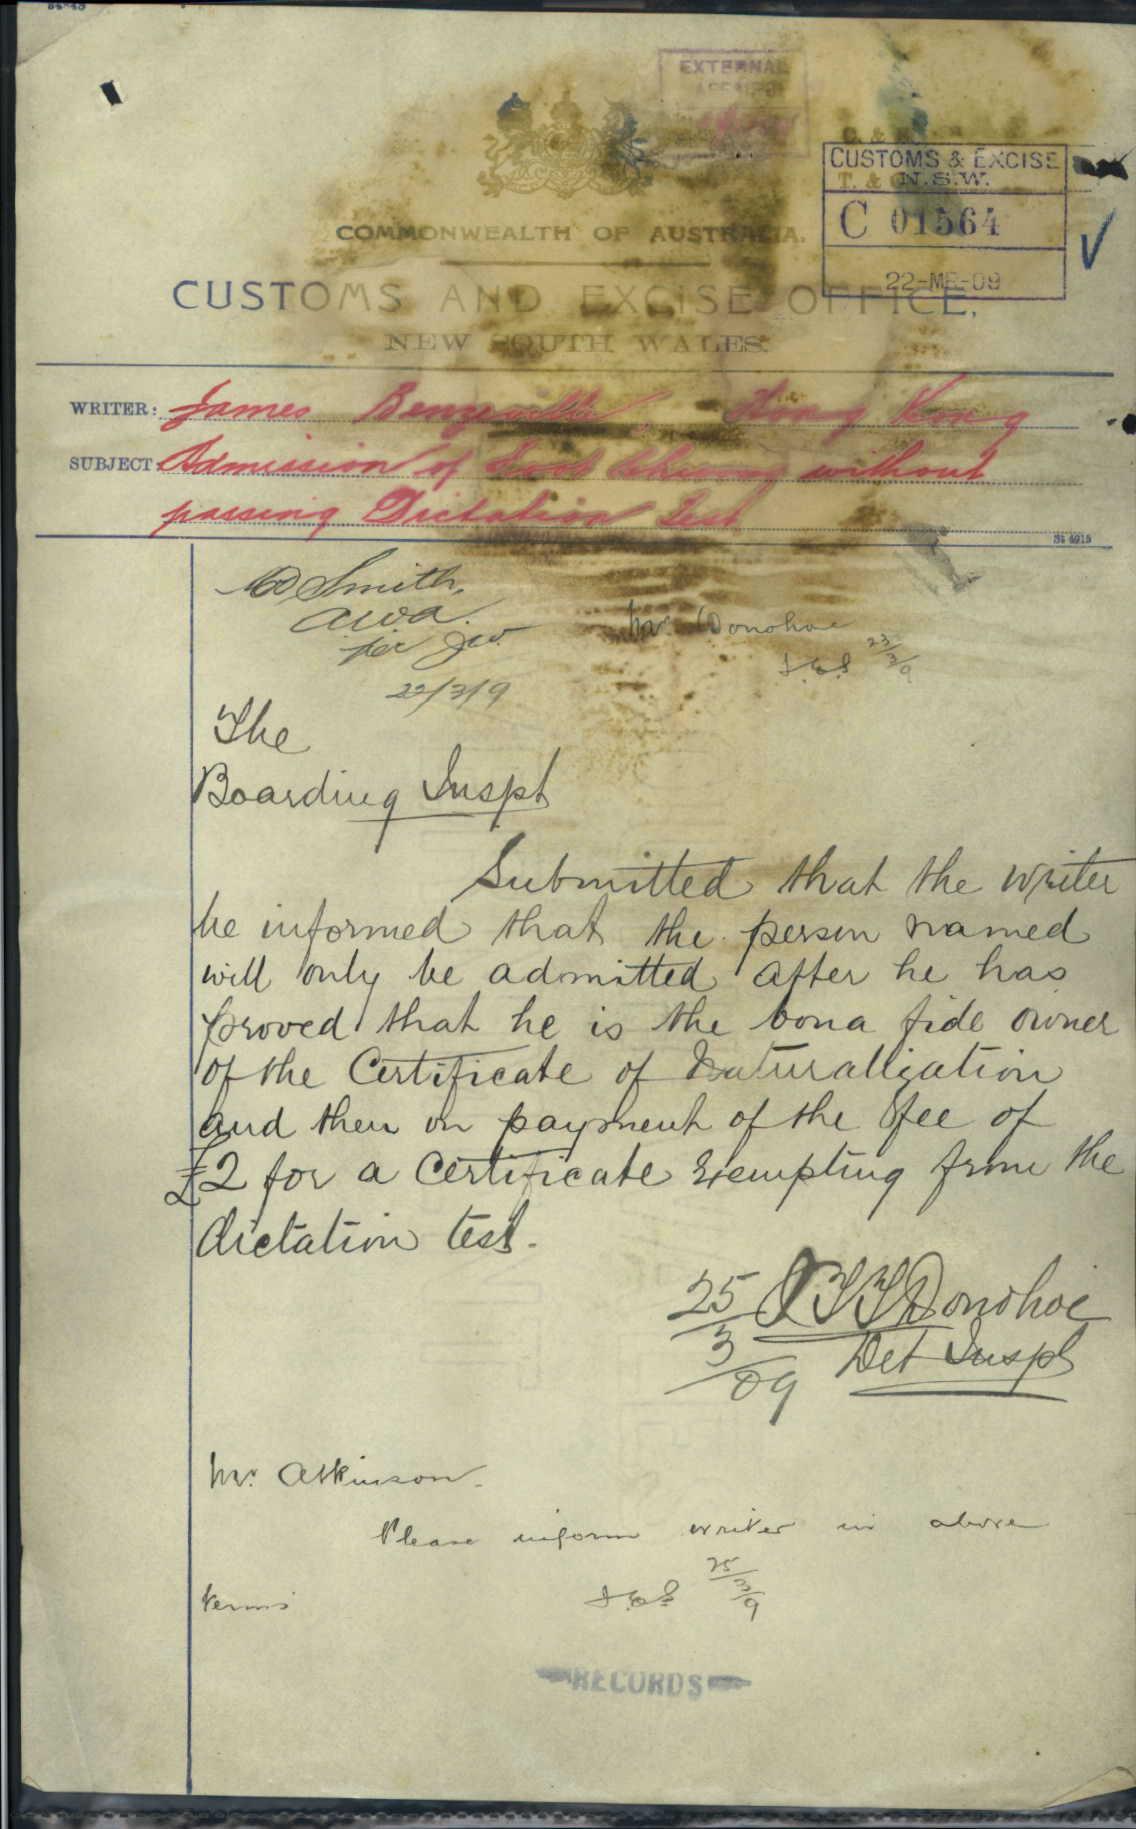 EXTERNAL
CUSTOMS & EXCISE
N.S.W.
C 01564
22-MR-09
COMMONWEALTH OF AUSTRALIA.
CUSTOMS AND EXCISE OFFICE.
NEW SOUTH WALES.
WRITER: James Hong Kong
SUBJECT: Admission of without
passing Dictation Test
St 4915
Smith,
per
22/3/9
Mr. Donohoe
23/3/9
The
Boarding Inspt
Submitted that the writer
be informed that the person named
will only be admitted after he has
proved that he is the bona fide owner
of the Certificate of Naturaliation
and then on payment of the fee of
£2 for a Certificate Exempting from the
dictation test.
25/3/09 Donohoe
Det Inspt
Mr. Atkinson.
Please inform writer in above
terms 25/3/9
RECORDS